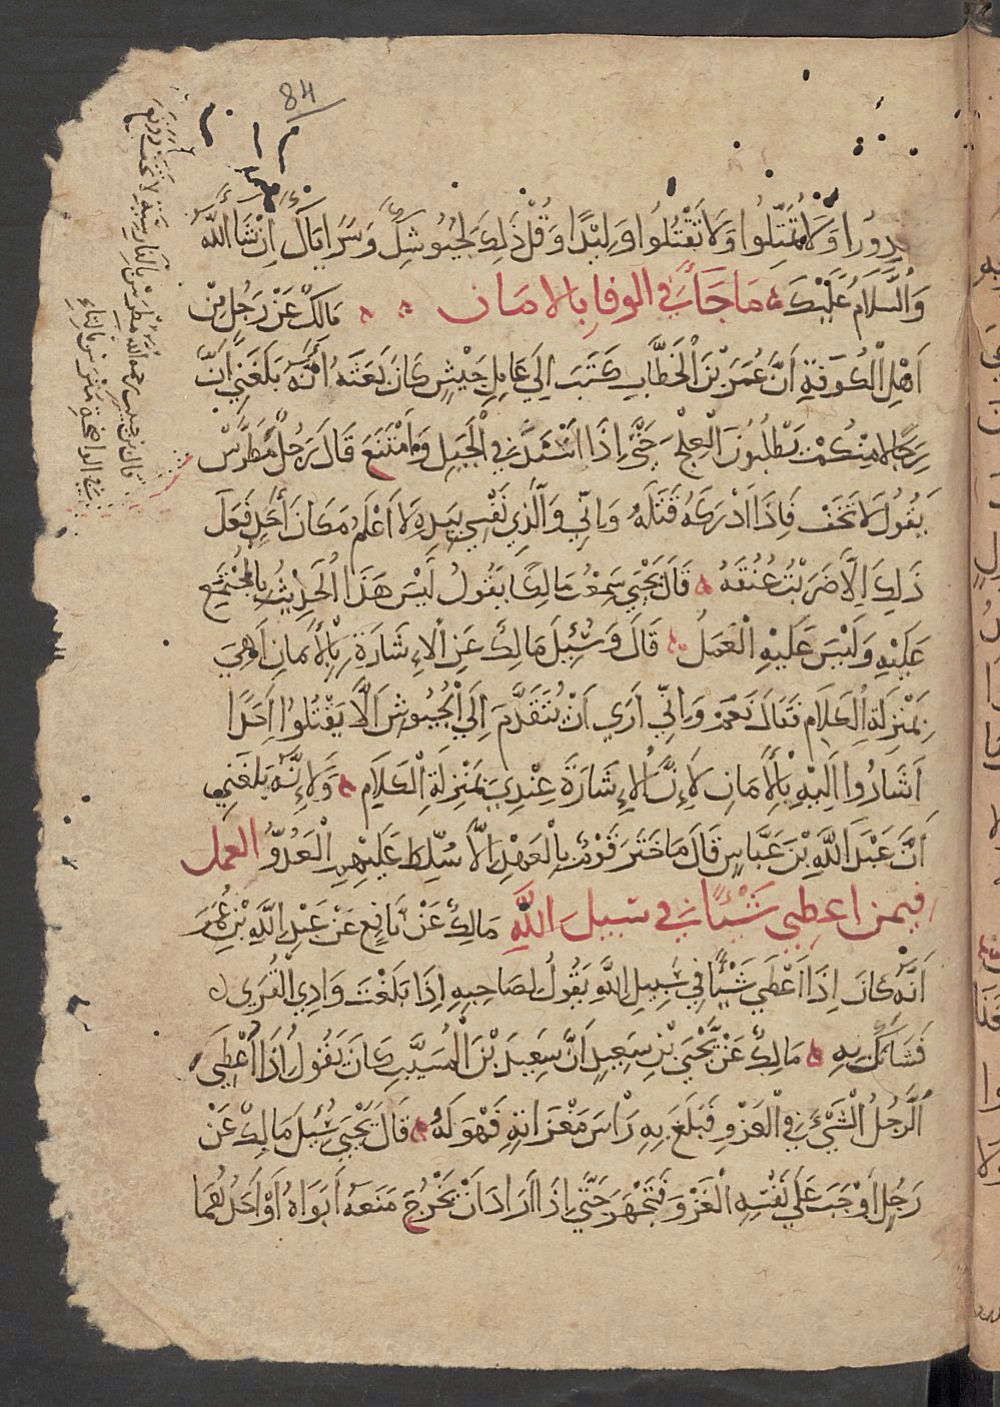 84
يدروا وَلَا تُمَثِّلُوا وَلَا تَقْتُلُوا وَلِيْدًا وَقُلْ ذَلِكَ لِجُيُوشِكَ وَسَرَايَاكَ اِنْ شَا اللَّهُ
وَالسَّلَامُ عَلَيْكَ مَا جَآءَ فِي الوفا بالامان مَالِكٌ عَنْ رَجُلٍ مِنْ
اَهْلِ الْكُوفَةِ اَنَّ عُمَرَ بْنَ الْخَطَّابِ كَتَبَ اِلَى عَامِلِ جَيْشٍ كَانَ بَعَثَهُ اَنَّهُ بَلَغَنِي اَنَّ
رِجَالًا مِنْكُمْ يَطْلُبُونَ الْعِلْجَ حَتَّى اِذَا اشْتَدَّ فِي الْجَبَلِ وَامْتَنَعَ قَالَ رَجُلٌ مَطَّرَسْ
يَقُولُ لَا تَخَفْ فَاِذَا اَدْرَكَهُ قَتَلَهُ وَاِنِّي وَالَّذِي نَفْسِي بِيَدِهِ لَا اَعْلَمُ مَكَانَ اَحَدٍ فَعَلَ
ذَلِكَ اِلَّا ضَرَبْتُ عُنُقَهُ قَالَ يَحْيَى سَمِعْتُ مَالِكًا يَقُولُ لَيْسَ هَذَا الْحَدِيْثُ بِالْمُجْتَمَعِ
عَلَيْهِ وَلَيْسَ عَلَيْهِ الْعَمَلُ قَالَ وَسُئِلَ مَالِكٌ عَنِ الْاِشَارَةِ بِالْاَمَانِ اَهِيَ
بِمَنْزِلَةِ الْكَلَامِ فَقَالَ نَعَمْ وَاِنِّي اَرَى اَنْ يُتَقَدَّمَ اِلَى الْجُيُوشِ اَلَّا يَقْتُلُوا اَحَدًا
اَشَارُوا اِلَيْهِ بِالْاَمَانِ لِاَنَّ الْاِشَارَةَ عِنْدِي بِمَنْزِلَةِ الْكَلَامِ وَلِاِنَّهُ بَلَغَنِي
اَنَّ عَبْدَ اللَّهِ بْنَ عَبَّاسٍ قَالَ مَا خَتَرَ قَوْمٌ بِالْعَهْدِ اِلَّا سُلِّطَ عَلَيْهِمِ الْعَدُوُّ العمل
فيمن اعطي شَيْئًا فِي سَبِيلِ اللَّهِ مَالِكٌ عَنْ نَافِعٍ عَنْ عَبْدِ اللَّهِ بْنِ عُمَرَ
اَنَّهُ كَانَ اِذَا اَعْطَى شَيْئًا فِي سَبِيلِ اللَّهِ يَقُولُ لِصَاحِبِهِ اِذَا بَلَغْتَ وَادِي الْقُرَى
فَشَانَكَ بِهِ مَالِكٌ عَنْ يَحْيَى بْنِ سَعِيدٍ اَنَّ سَعِيدَ بْنَ الْمُسَيَّبِ كَانَ يَقُولُ اِذَا اُعْطِيَ
الرَّجُلُ الشَّيْءَ فِي الْغَزْوِ فَبَلَغَ بِهِ رَاْسَ مَغْزَاتِهِ فَهُوَ لَهُ قَالَ يَحْيَى سُئِلَ مَالِكٌ عَنْ
رَجُلٍ اَوْجَبَ عَلَى نَفْسِهِ الْغَزْوَ فَتَجَهَّزَ حَتَّى اِذَا اَرَادَ اَنْ يَخْرُجَ مَنَعَهُ اَبَوَاهُ اَوْ اَحَدُهُمَا